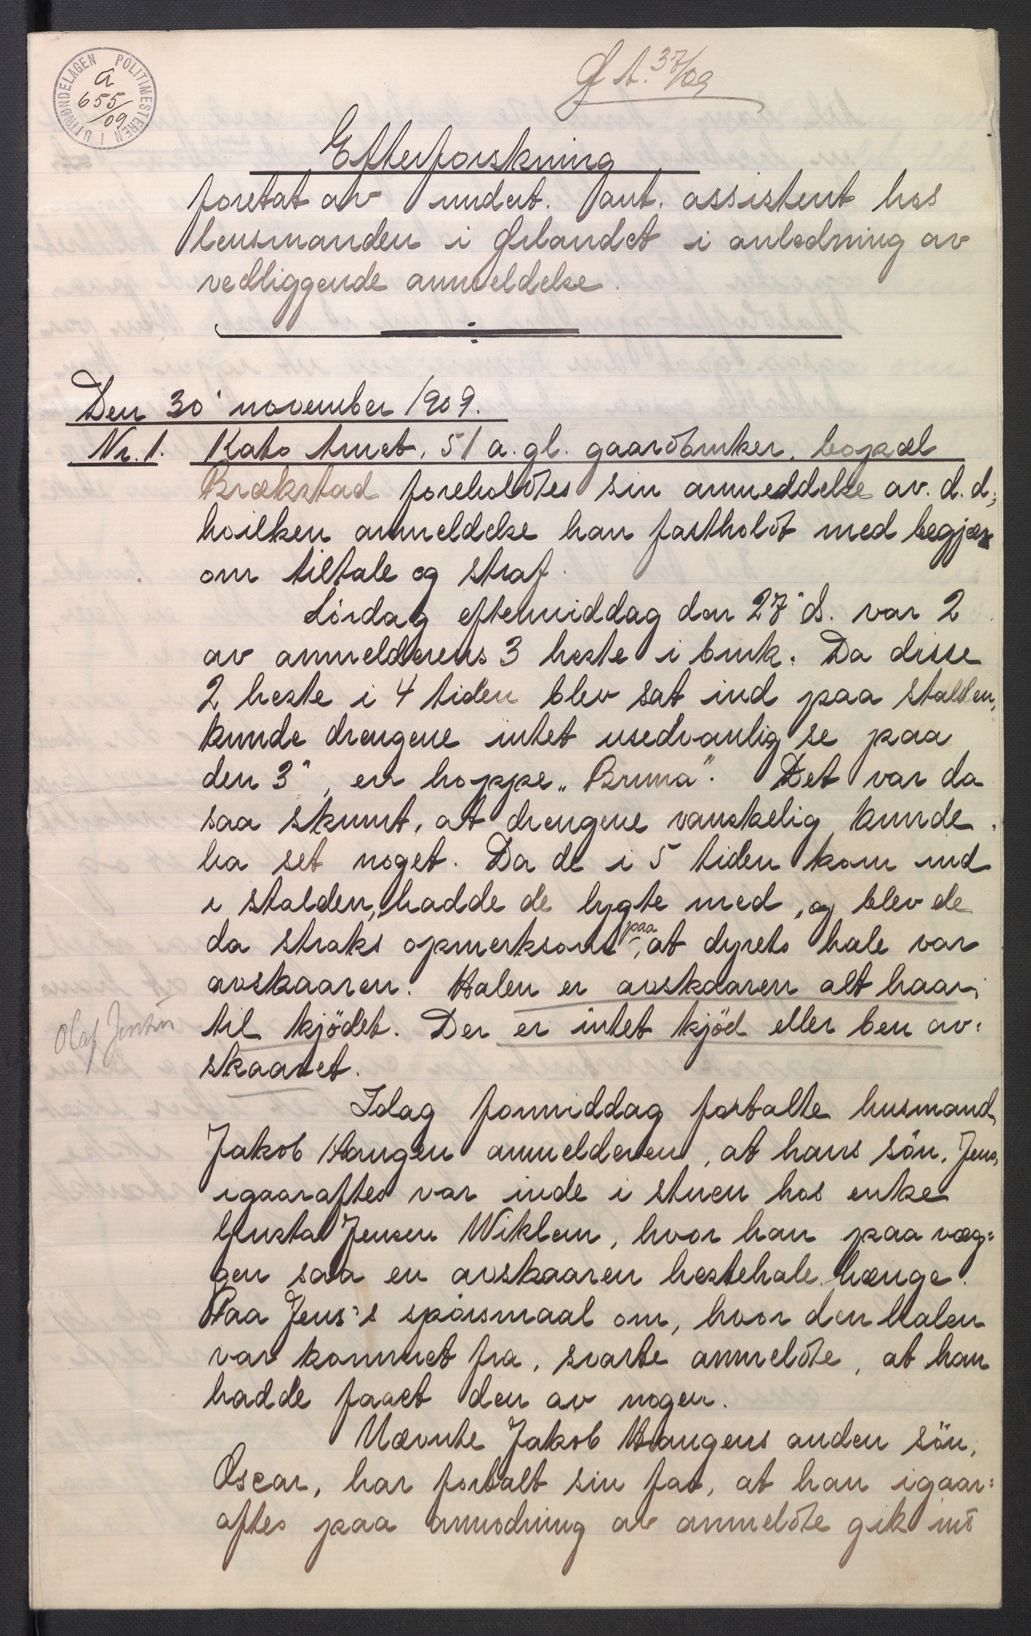 POLITIMESTEREN I UTTRØNDELAGEN
a
655/09
Ø t. 37/09
Efterforskning
foretat av undert. aut. assistent hos
lensmanden i Ørlandet i anledning av
vedliggende anmeldelse.
Den 30' november 1909.
Nr. 1. Kato 51 a. gl. gaardbruker, bopæl
Brækstad foreholdtes sin anmeddelse av d. d.,
hvilken anmeldelse han fastholdt med begjær
om tiltale og straf.
Lördag eftermiddag den 27' ds. var 2
av anmelderens 3 heste i bruk. Da disse
2 heste i 4 tiden blev sat ind paa stalden,
kunde drengene intet usedvanlig se paa
den 3', en hoppe „Bruna". Det var da
saa skumt, at drengene vanskelig kunde
ha set noget. Da de i 5 tiden kom ind
i stalden, hadde de lygte med, og blev de
da straks opmerksom paa, at dyrets hale var
avskaaren. Halen er avskaaren alt haar,
til kjödet. Der er intet kjöd eller ben av=
Olaf
skaaret.
Idag formiddag fortalte husmand
Jakob Haugen anmelderen, at hans sön, Jens,
igaaraftes var inde i stuen hos enke
Gusta Jensen Wiklem, hvor han paa væg=
gen saa en avskaaren hestehale hænge.
Paa Jens's spörsmaal om, hvor den halen
var kommet fra, svarte anmeldte, at han
hadde faaet den av nogen.
Nævnte Jakob Haugens anden sön,
Oscar, har fortalt sin far, at han igaar=
aftes paa anmodning av anmeldte gik ind